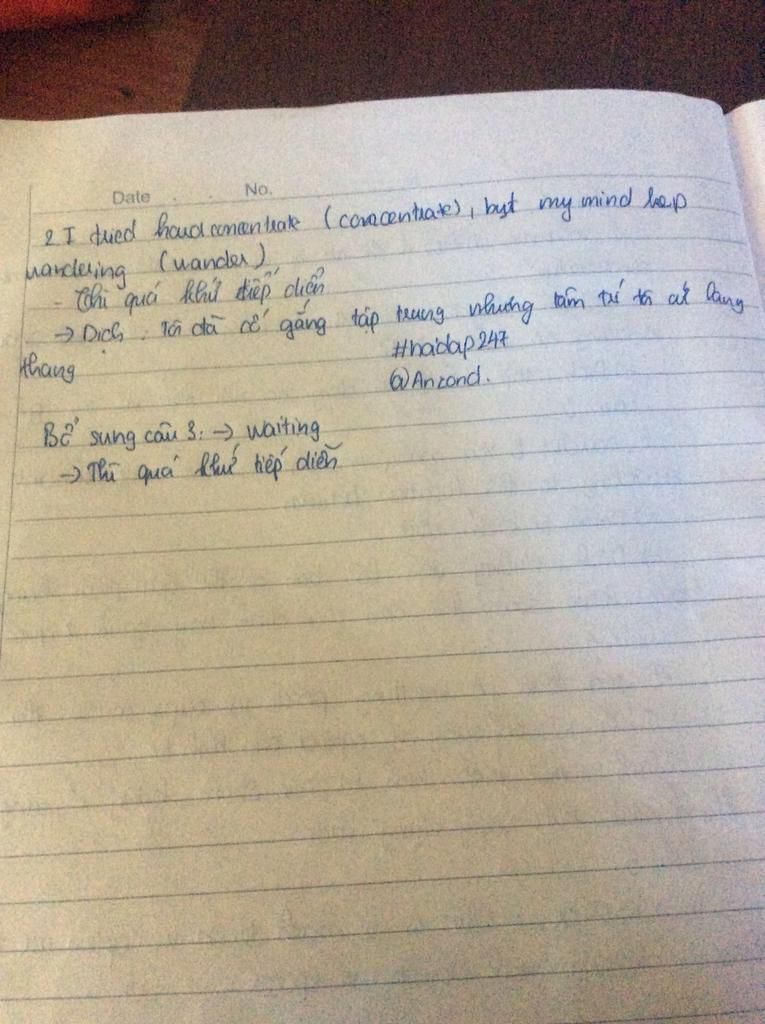 Date No.
2 I tried hard concentrate (concentrate), but my mind kep
wandering (wander)
- Thì quá khứ tiếp diễn
→ Dịch: Tôi đã cố gắng tập trung nhưng tâm trí tôi cứ lang
thang
#hoidap247
@Anzond.
Bổ sung câu 3: → waiting
→ Thì quá khứ tiếp diễn